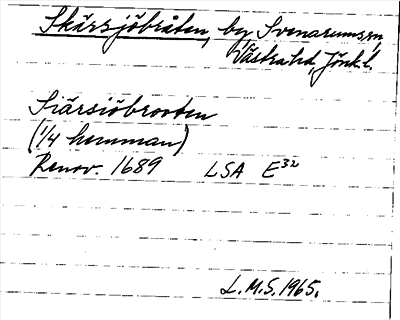 Skärsjöbråten, by Svenarums sn,
Västra hd, Jönk. l.
Siärsiöbrooten
(1/4 hemman)
Renov. 1689 LSA E32
L.M.S. 1965.